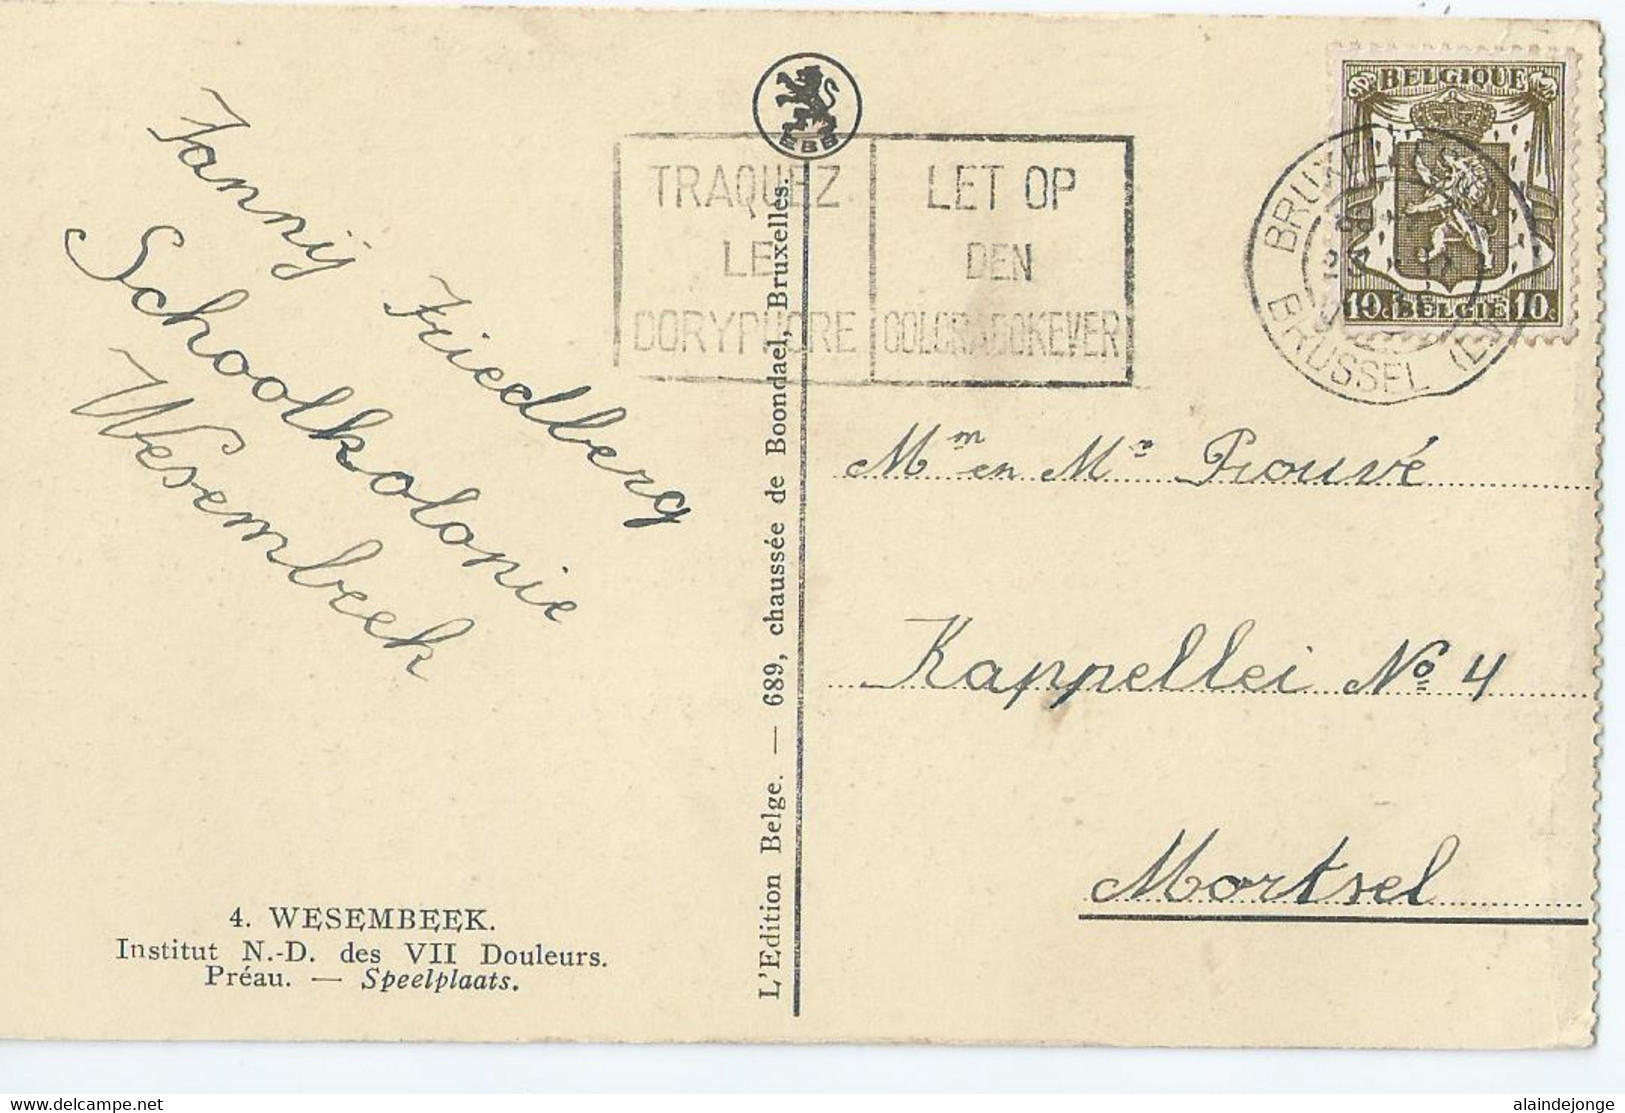 Jannij Friedberg
Schoolkolonie
Wesembeek
4. WESEMBEEK.
Institut N.-D. des VII Douleurs.
Préau. — Speelplaats.
EBB
L'Edition Belge. — 689, chaussée de Boondael, Bruxelles.
TRAQUEZ
LE
DORYPHORE
LET OP
DEN
COLORADOKEVER
BELGIQUE
10c BELGIË 10c
BRUXELLES
BRUSSEL
Mm en Mr Prouvé
Kappellei No 4
Mortsel
delcampe.net
alaindejonge